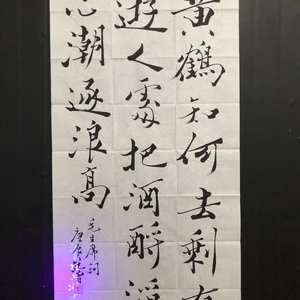 黄鶴知何去剩有
遊人處把酒酹滔
心潮逐浪高
毛主席词